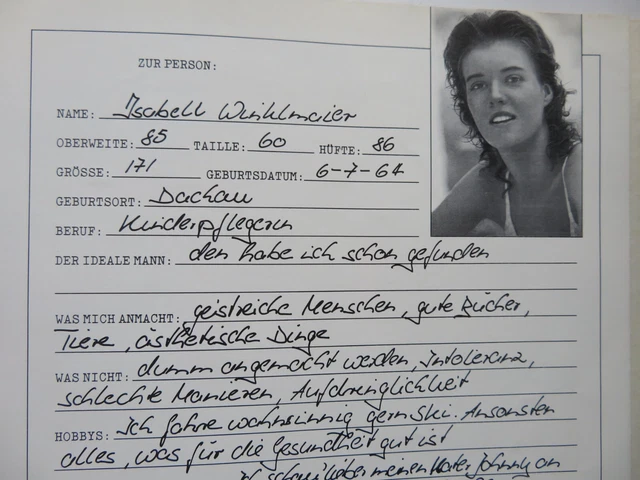 ZUR PERSON:
NAME: Isabell Winklmaier
OBERWEITE: 85 TAILLE: 60 HÜFTE: 86
GRÖSSE: 171 GEBURTSDATUM: 6-7-64
GEBURTSORT: Dachau
BERUF: Kinderpflegerin
DER IDEALE MANN: den habe ich schon gefunden
WAS MICH ANMACHT: geistreiche Menschen, gute Bücher,
Tiere, ästhetische Dinge
WAS NICHT: dumm angemacht werden, Intoleranz,
schlechte Manieren, Aufdringlichkeit
HOBBYS: Ich fahre wahnsinnig gern Ski. Ansonsten
alles, was für die Gesundheit gut ist
lieber meinen Kater Johnny an